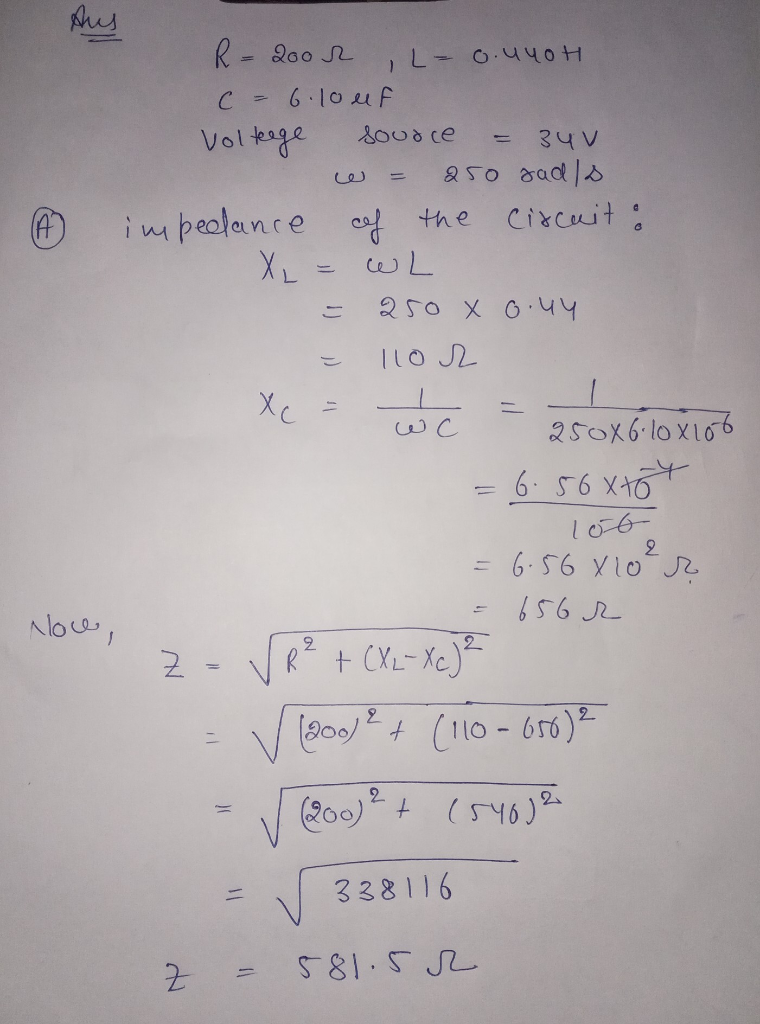 Ans
R = 200 Ω , L = 0.440H
C = 6.10 μF
Voltage source = 34V
ω = 250 rad/s
(A) impedance of the circuit :
X_L = ωL
= 250 × 0.44
= 110 Ω
X_C = 1/ωC = 1/250×6.10×10⁻⁶
= 6.56 ×10⁻⁴/10⁻⁶
= 6.56 ×10² Ω
= 656 Ω
Now,
Z = √R² + (X_L-X_C)²
= √(200)² + (110 - 656)²
= √(200)² + (546)²
= √338116
Z = 581.5 Ω